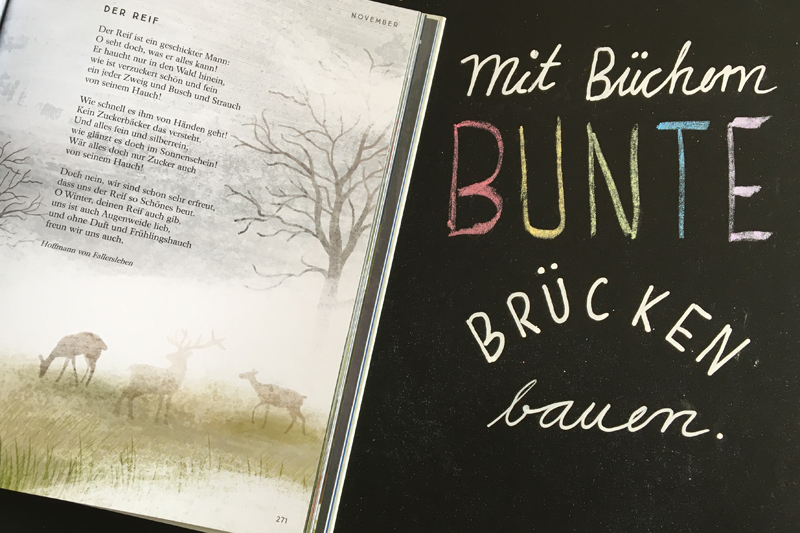 DER REIF
NOVEMBER
Der Reif ist ein geschickter Mann:
O seht doch, was er alles kann!
Er haucht nur in den Wald hinein,
wie ist verzuckert schön und fein
ein jeder Zweig und Busch und Strauch
von seinem Hauch!
Wie schnell es ihm von Händen geht!
Kein Zuckerbäcker das versteht.
Und alles fein und silberrein,
wie glänzt es doch im Sonnenschein!
Wär alles doch nur Zucker auch
von seinem Hauch!
Doch nein, wir sind schon sehr erfreut,
dass uns der Reif so Schönes beut.
O Winter, deinen Reif auch gib,
uns ist auch Augenweide lieb,
und ohne Duft und Frühlingshauch
freun wir uns auch.
Hoffmann von Fallersleben
271
mit Büchern
BUNTE
BRÜCKEN
bauen.